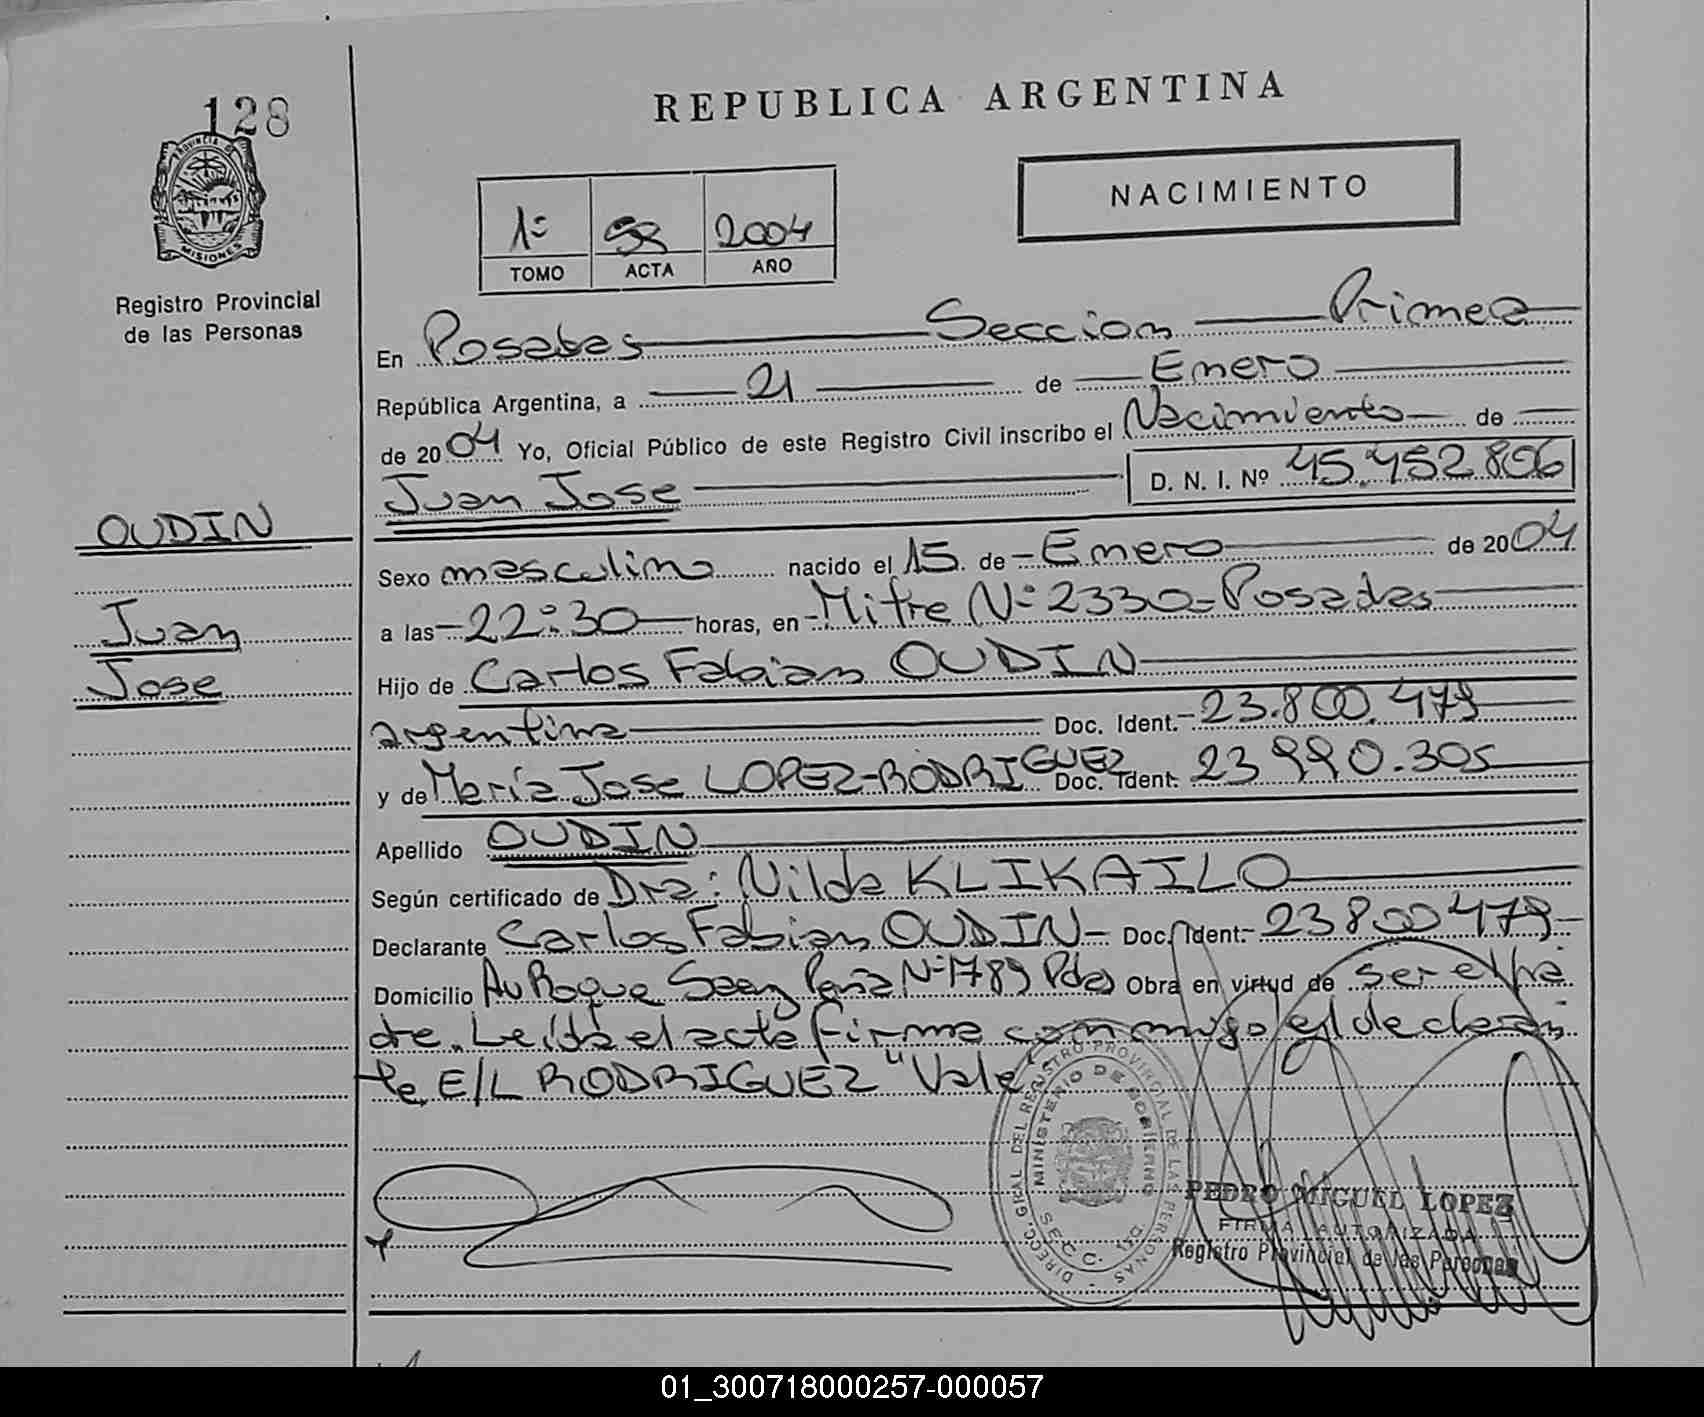 128
REPUBLICA ARGENTINA
PROVINCIA DE
MISIONES
Registro Provincial
de las Personas
NACIMIENTO
1º 2004
TOMO ACTA AÑO
En Posadas Seccion Primera
República Argentina, a 21 de Enero
de 2004 Yo, Oficial Público de este Registro Civil inscribo el Nacimiento de
Juan Jose D. N. I. Nº 45.452.806
OUDIN
Juan
Jose
Sexo masculino nacido el 15 de Enero de 2004
a las 22:30 horas, en Mitre Nº 2330-Posadas
Hijo de Carlos Fabian OUDIN
argentina Doc. Ident. 23.800.479
y de María Jose LOPEZ-RODRIGUEZ Doc. Ident. 23 990.305
Apellido OUDIN
Según certificado de Dra: Nilda KLIKAILO
Declarante Carlos Fabian OUDIN- Doc. Ident. 23800479-
Domicilio Av Roque Saenz Peña Nº 1789 Pdas Obra en virtud de ser el pa
dre. Leída el acta firma conmigo el declaran
te E/L RODRIGUEZ "Vale
DIRECC. GRAL DEL REGISTRO PROVINCIAL DE LAS PERSONAS
MINISTERIO DE GOBIERNO
SECC. 1RA
PEDRO MIGUEL LOPEZ
FIRMA AUTORIZADA
Registro Provincial de las Personas
01_300718000257-000057